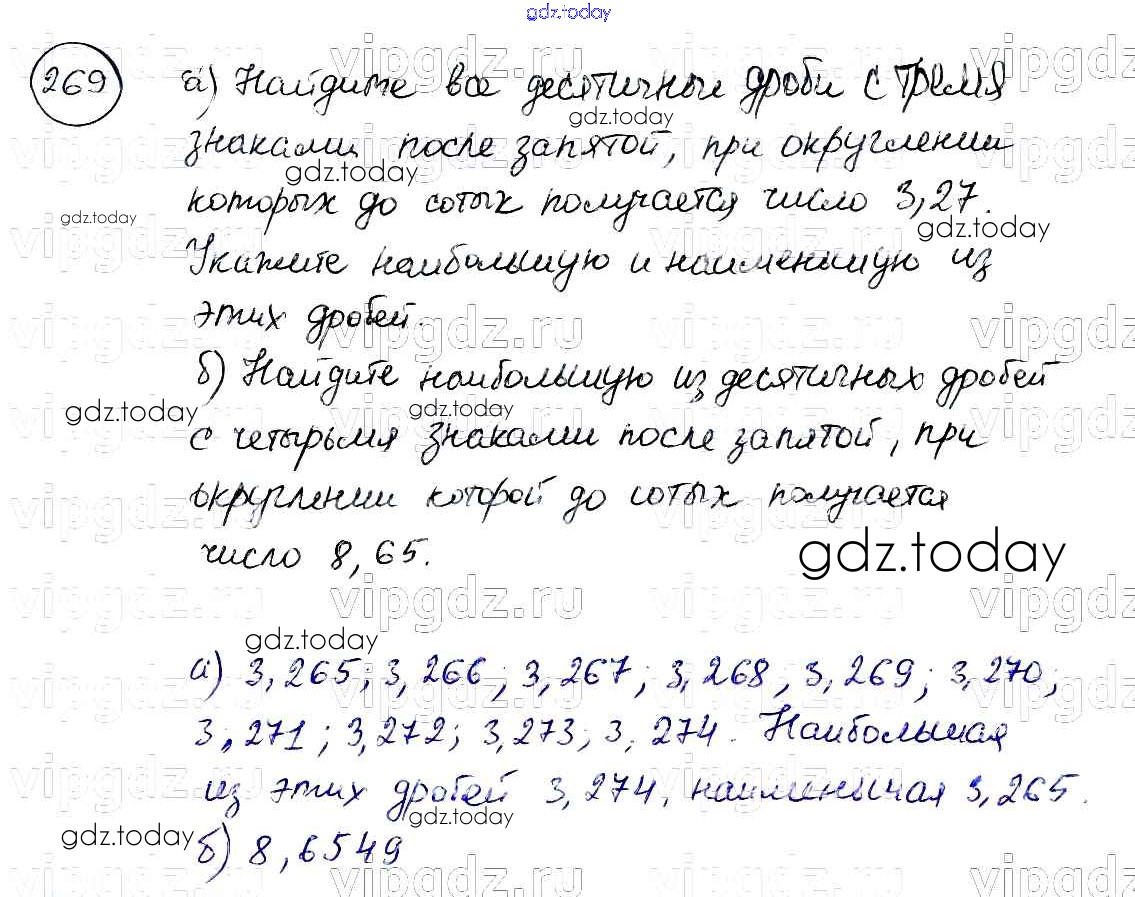 gdz.today
269 а) Найдите все десятичные дроби с тремя
знаками после запятой, при округлении
которых до сотых получается число 3,27.
Укажите наибольшую и наименьшую из
этих дробей.
б) Найдите наибольшую из десятичных дробей
с четырьмя знаками после запятой, при
округлении которой до сотых получается
число 8,65.
gdz.today
а) 3,265; 3,266; 3,267; 3,268, 3,269; 3,270;
3,271; 3,272; 3,273; 3,274. Наибольшая
из этих дробей 3,274, наименьшая 3,265.
б) 8,6549
gdz.today
vipgdz.ru